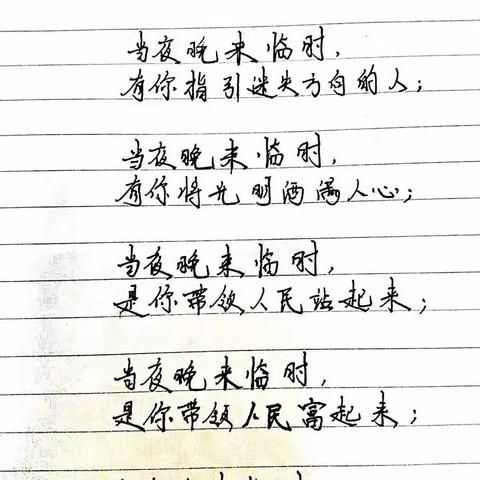 当夜晚来临时，
有你指引迷失方向的人；
当夜晚来临时，
有你将光明洒满人心；
当夜晚来临时，
是你带领人民站起来；
当夜晚来临时，
是你带领人民富起来；